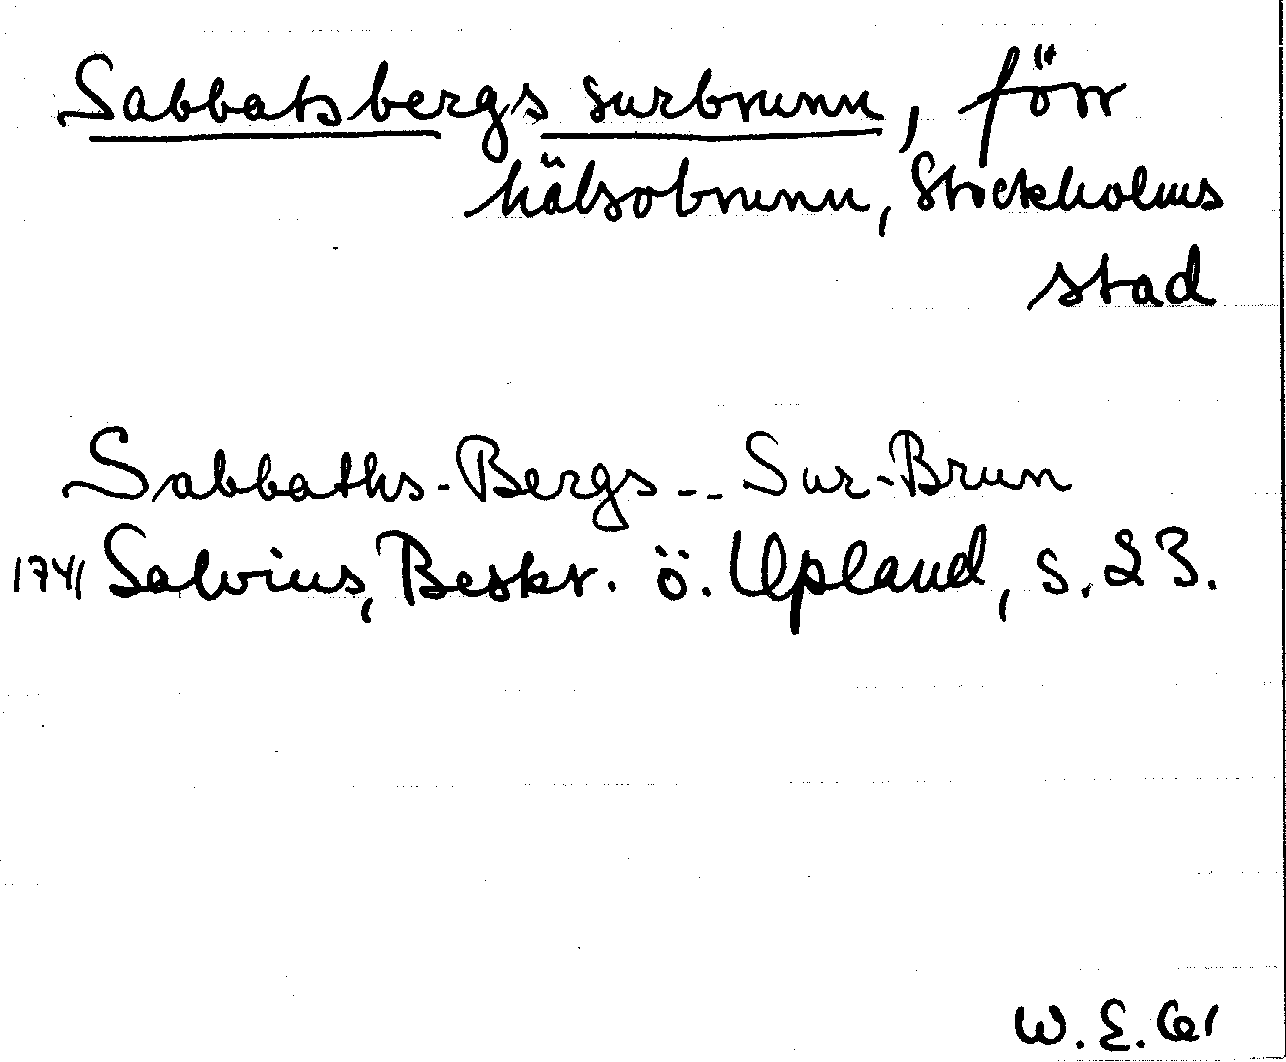 Sabbatsbergs surbrunn, förr
hälsobrunn, Stockholms
stad
Sabbaths-Bergs -- Sur-Brun
1741 Salvius, Beskr. ö. Upland, s. 23.
W. E. 61